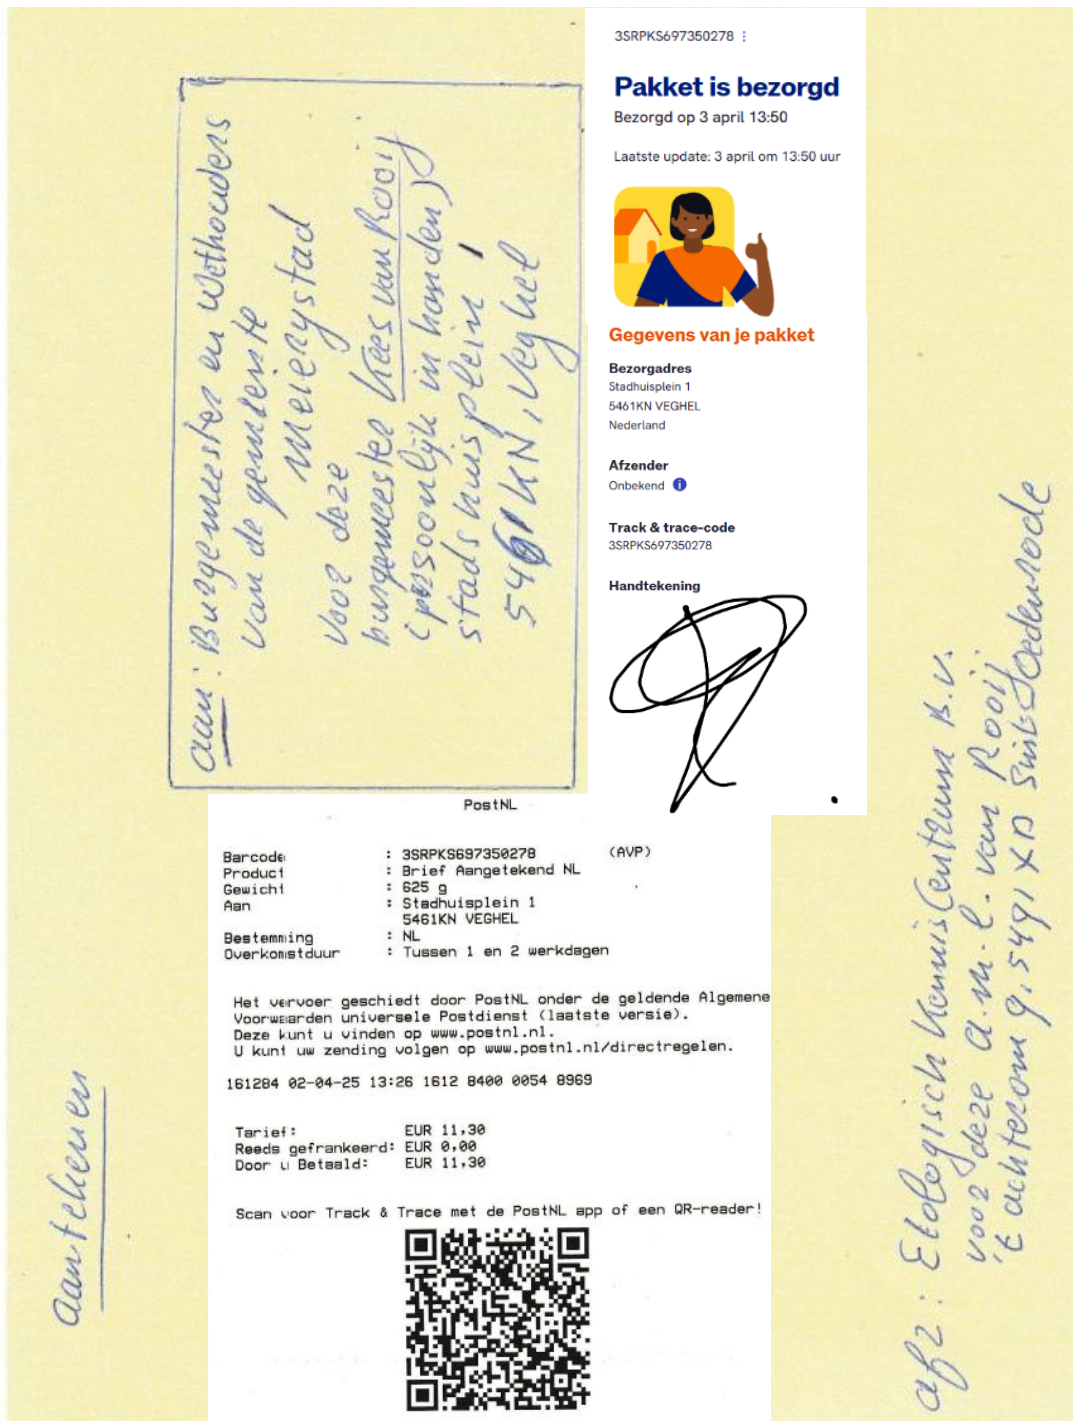 aan: Burgemeester en Wethouders
van de gemeente
Meierystad
voor deze
burgemeester Kees van Rooij
(persoonlijk in handen)
stadhuisplein 1
5461KN, Veghel
3SRPKS697350278
Pakket is bezorgd
Bezorgd op 3 april 13:50
Laatste update: 3 april om 13:50 uur
Gegevens van je pakket
Bezorgadres
Stadhuisplein 1
5461KN VEGHEL
Nederland
Afzender
Onbekend
Track & trace-code
3SRPKS697350278
Handtekening
PostNL
Barcode : 3SRPKS697350278 (AVP)
Product : Brief Aangetekend NL
Gewicht : 625 g
Aan : Stadhuisplein 1
5461KN VEGHEL
Bestemming : NL
Overkomstduur : Tussen 1 en 2 werkdagen
Het vervoer geschiedt door PostNL onder de geldende Algemene
Voorwaarden universele Postdienst (laatste versie).
Deze kunt u vinden op www.postnl.nl.
U kunt uw zending volgen op www.postnl.nl/directregelen.
161284 02-04-25 13:26 1612 8400 0054 8969
Tarief: EUR 11,30
Reeds gefrankeerd: EUR 0,00
Door u Betaald: EUR 11,30
Scan voor Track & Trace met de PostNL app of een QR-reader!
aantekenen
afz: Ekologisch KennisCentrum B.V.
voor deze a.m.l. van Rooij
't achterom 9, 5491 XD Sint-Oedenrode